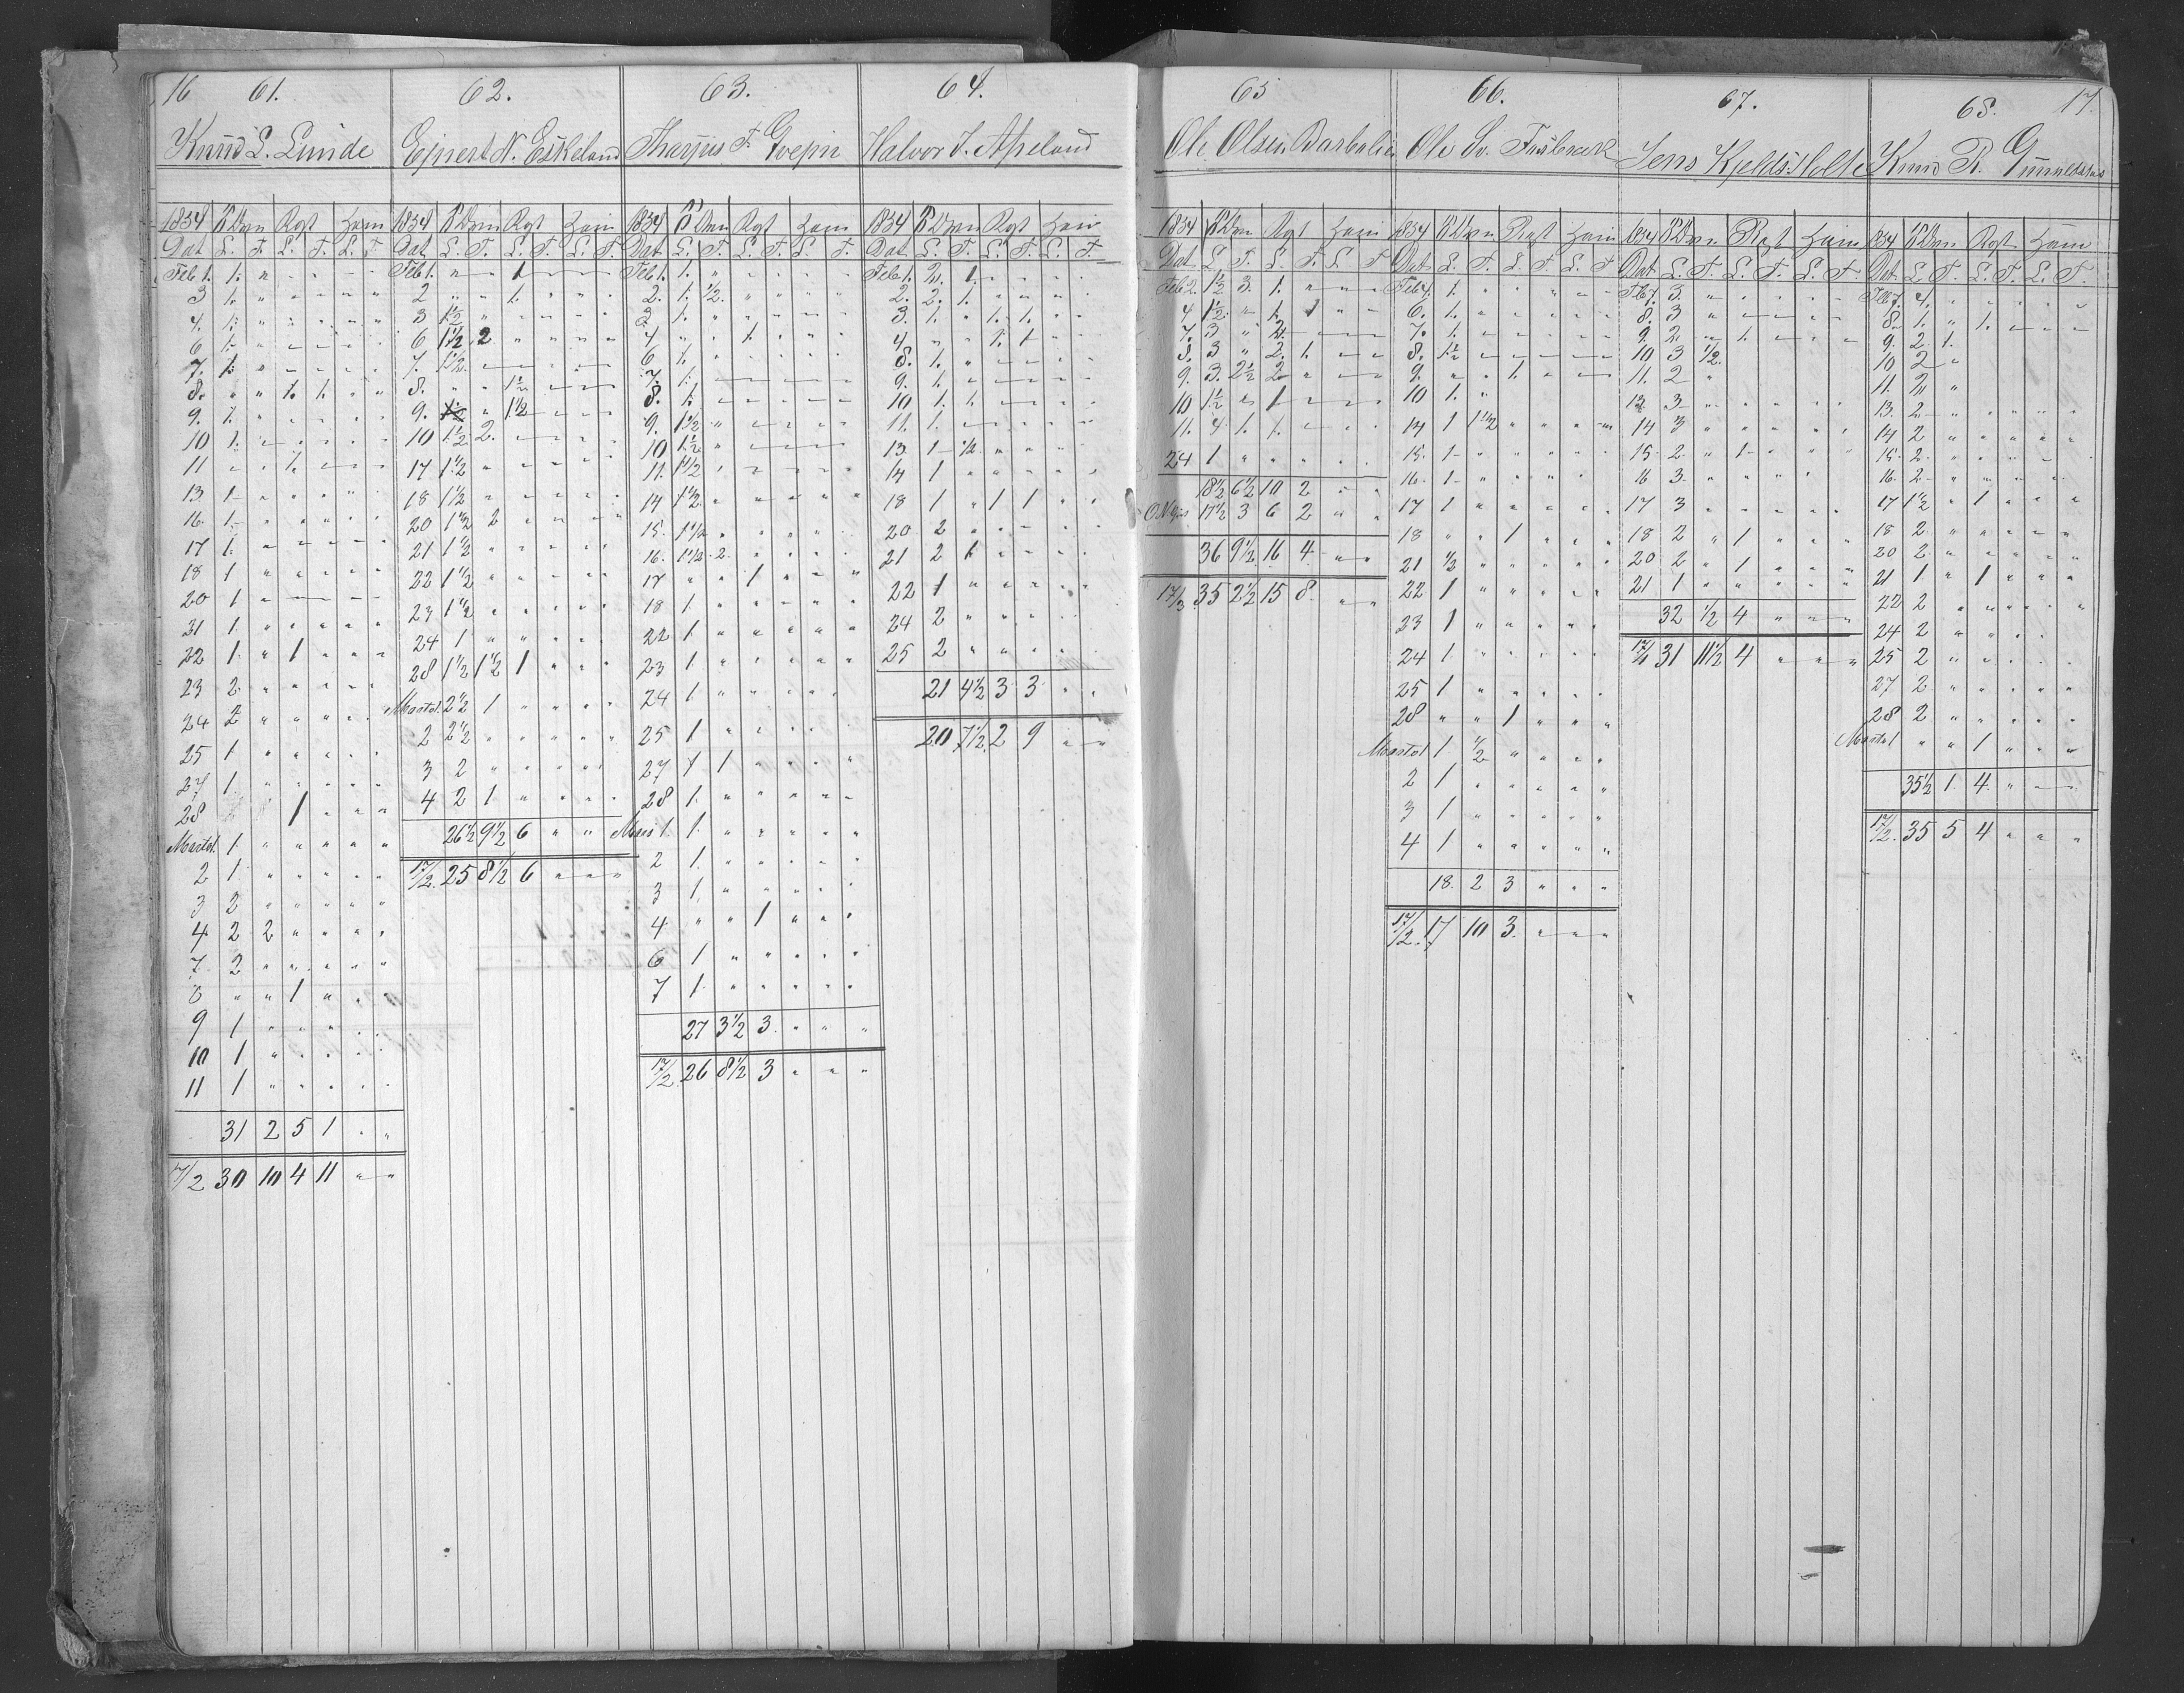 16 61.
Knud S. Lunde
1834 Rgt Ham
Dat L. T. L. T. L. T
Feb 1. 1. " " " " "
3 1. " " " " "
4. 1. " " " " "
6 1. " " " " "
7. 1. " " " " "
8. " " 1. 1. " "
9. 1. " " " " "
10 1. " " " " "
11 " " 1. " " "
13 1 " " " " "
16. 1. " " " " "
17 1. " " " " "
18 1 " " " " "
20 1 " " " " "
31 1. " " " " "
22 1. " 1 " " "
23 2. " " " " "
24 2 " " " " "
25 1 " " " " "
27 1. " " " " "
28 1 " " "
1 " " " " "
2 1 " " " " "
3 2 " " " " "
4 2 2 " " " "
7 2 " " " " "
8 " " 1 " " "
9 1 " " " " "
10 1 " " " " "
11 1 " " " " "
31 2 5 1 " "
17/2 30 10 4 11 " "
62.
Ejnert N. Eskeland
1834 Rgt Ham
Dat L. T. L. T. L. T.
Feb 1. " " 1 " " "
2 " " 1. " " "
3 1½ " " " " "
6 1½ 2 " " " "
7. 1½ " " " " "
8. " " 1½ " " "
9. " 1½ " " "
10 1½ 2. " " " "
17 1½ " " " " "
18 1½ " " " " "
20 1½ 2 " " " "
21 1½ " " " " "
22 1½ " " " " "
23 1½ " " " " "
24 1 " " " " "
28 1½ 1½ 1 " " "
2½ 1 " " " "
2 2½ " " " " "
3 2 " " " " "
4 2 1 " " " "
26½ 9½ 6 " "
17/2. 25 8½ 6 " " "
63.
Tharjus T. Gvejn
1834 Rgt Ham
Dat L. T. L. T. L. T.
Feb 1. 1. " " " " "
2. 1. ½. " " " "
3. 1. " " " " "
4 " " 1. " " "
6 1. " " " " "
7. 1. " " " " "
8. 1. " " " " "
9. 1½ " " " " "
10 1½ " " " " "
11. 1½ " " " " "
14 1½ " " " " "
15. 1½ " " " " "
16. 1½ 2 " " " "
17 " " 1 " " "
18 1. " " " " "
22 1. " " " " "
23 1. " " " " "
24 1 " " " " "
25 1 " " " " "
27 1 1 " " " "
28 1. " " " " "
1. 1. " " " " "
2 1. " " " " "
3 1 " " " " "
4 " " 1 " " "
6 1 " " " " "
7 1. " " " " "
27 3½ 3 " " "
17/2. 26 8½ 3 " " "
64.
Halvor J. Apeland
1834 Rgt Ham
Dat L. T. L. T. L. T.
Feb 1. 2. 1. " " " "
2. 2. 1. " " " "
3. 1. " 1. 1. " "
4 " " 1. 1 " "
8. 1. " " " " "
9. 1. " " " " "
10 1. 1. " " " "
11. 1. " " " " "
13. 1 ½. " " " "
14 1 " " " " "
18 1 " 1 1 " "
20 2 " " " " "
21 2 1 " " " "
22 1 " " " " "
24 2 " " " " "
25 2 " " " " "
21 4½ 3 3 " "
20 7½ 2 9 " "
65
Ole Olsen
1834 Rgt Ham
Dat L. T. L. T. L. T
Feb 2. 1½ 3. 1. " " "
4 1½ " 1. 1 " "
7. 3 " 2. " " "
8. 3 " 2. 1. " "
9. 3. 2½ 2 " " "
10 1½ " 1 " " "
11. 4. 1. 1. " " "
24 1 " " " " "
18½ 6½ 10 2 " "
17½ 3 6 2 " "
36 9½ 16 4 " "
17/3 35 2½ 15 8 " "
66.
Ole Sv.
1834 Rgt Ham
Dat L. T. L. T. L. T
Feb 4. 1. " " " " "
6. 1. " " " " "
7. 1. " " " " "
8. 1½ " " " " "
9. " " 1. " " "
10 1. "
14 1 1½ " " " "
15. 1 " " " " "
16. 1 " " " " "
17 1 " " " " "
18 " " 1 " " "
21 ½ " " " " "
22 1 " " " " "
23 1 " " " " "
24 1 " " " " "
25 1 " " " " "
28 " " 1 " " "
1 ½ " " " "
2 1 " " " " "
3 1 " " " " "
4 1 " " " " "
18. 2 3 " " "
17/2. 17 10 3. " " "
67.
Jens Kjelds. Holte
1834 Rgt Ham
Dat L. T. L. T. L. T
Feb 7. 3. " " " " "
8. 3 " " " " "
9. 2. " 1. " " "
10 3 ½.
11. 2 "
13. 3 " " " " "
14 3 " " " " "
15. 2 " 1 " " "
16 3. " " " "
17 3 " " " " "
18 2 " 1 " " "
20 2 " 1 " " "
21 1 " " " " "
32 ½ 4 " " "
31 11½ 4 " " "
68. 17.
Knud R.
1834 Rgt Ham
Dat L T. L. T. L. T.
Feb 7. 4. " " " " "
8. 1. " 1. " " "
9. 2 1.
10 2 "
11. 2 "
13. 2 " " " " "
14 2 " " " " "
15. 2 " " " " "
16. 2 " " " " "
17 1½ " 1 " " "
18 2. " " " " "
20 2. " " " " "
21 1 " 1 " " "
22 2 " " " " "
24 2 " " " " "
25 2 " " " " "
27 2 " " " " "
28 2 " " " " "
" " 1 " " "
35½ 1. 4. " " "
17/2. 35 5 4 " " "